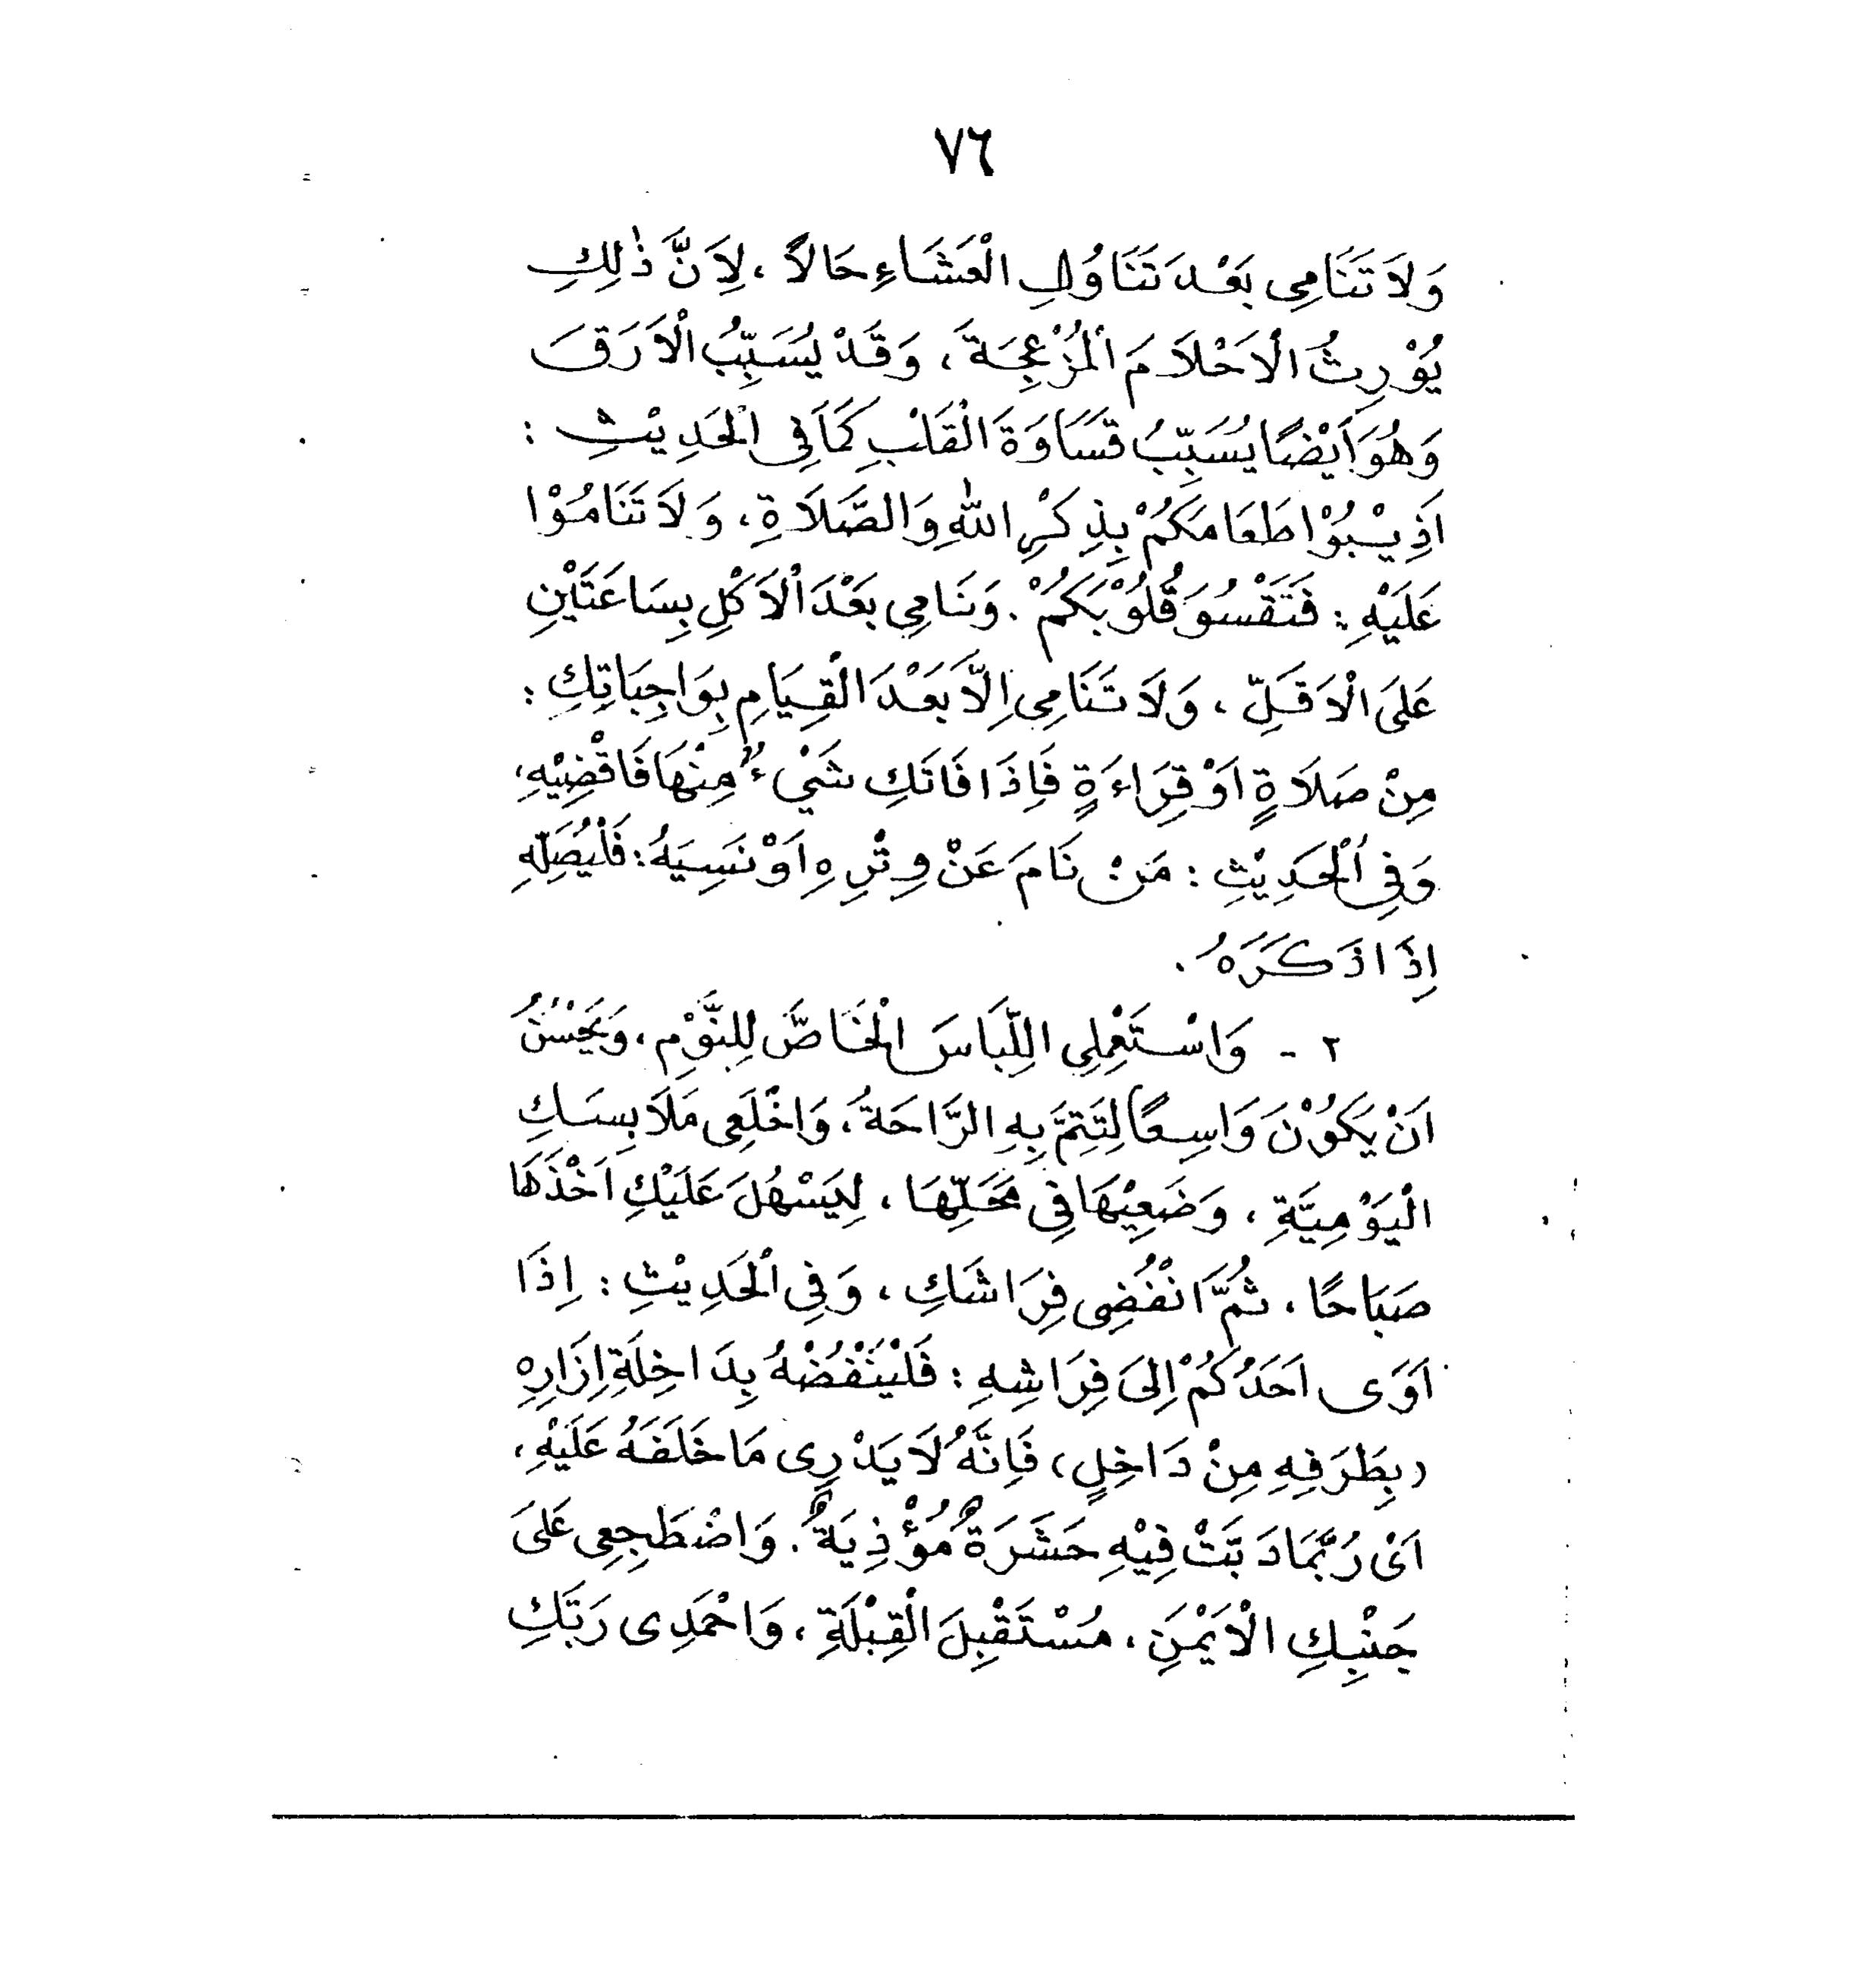 ٧٦
وَلَا تَنَامِى بَعْدَ تَنَاوُلِ الْعَشَاءِ حَالاً ، لِاَنَّ ذٰلِكِ
يُوْرِثُ الْاَحْلَامَ الْمُزْعِجَةَ ، وَقَدْ يُسَبِّبُ الْاَرَقَ
وَهُوَ اَيْضًا يُسَبِّبُ قَسَاوَةَ الْقَلْبِ كَمَا فِى الْحَدِيْثِ :
اَذِيْبُوْا طَعَامَكُمْ بِذِكْرِ اللّٰهِ وَالصَّلَاةِ ، وَلَا تَنَامُوْا
عَلَيْهِ : فَتَقْسُوَ قُلُوْبُكُمْ . وَنَامِى بَعْدَ الْاَكْلِ بِسَاعَتَيْنِ
عَلَى الْاَقَلِّ ، وَلَا تَنَامِى اِلَّا بَعْدَ الْقِيَامِ بِوَاجِبَاتِكِ :
مِنْ صَلَاةٍ اَوْ قِرَاءَةٍ فَاِذَا فَاتَكِ شَىْءٌ مِنْهَا فَاقْضِيْهِ ،
وَفِى الْحَدِيْثِ : مَنْ نَامَ عَنْ وِتْرِهِ اَوْ نَسِيَهُ : فَلْيُصَلِّهِ
اِذَا ذَكَرَهُ .
٢ - وَاسْتَعْمِلِى اللِّبَاسَ الْخَاصَّ لِلنَّوْمِ ، وَيَحْسُنُ
اَنْ يَكُوْنَ وَاسِعًا لِتَتِمَّ بِهِ الرَّاحَةُ ، وَاخْلَعِى مَلَابِسَكِ
الْيَوْمِيَّةِ ، وَضَعِيْهَا فِى مَحَلِّهَا ، لِيَسْهُلَ عَلَيْكِ اَخْذُهَا
صَبَاحًا ، ثُمَّ انْفُضِى فِرَاشَكِ ، وَفِى الْحَدِيْثِ : اِذَا
اَوَى اَحَدُكُمْ اِلَى فِرَاشِهِ : فَلْيَنْفُضْهُ بِدَاخِلَةِ اِزَارِهِ
(بِطَرَفِهِ مِنْ دَاخِلٍ) ، فَاِنَّهُ لَا يَدْرِى مَا خَلَفَهُ عَلَيْهِ ،
اَىْ رُبَّمَا دَبَّتْ فِيْهِ حَشَرَةٌ مُؤْذِيَةٌ . وَاضْطَجِعِى عَلَى
جَنْبِكِ الْاَيْمَنِ ، مُسْتَقْبِلَ الْقِبْلَةِ ، وَاحْمَدِى رَبَّكِ